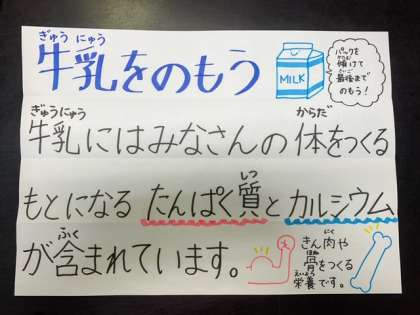 ぎゅう にゅう
牛乳をのもう
MILK
パックを
かたむ
傾けて
さいご
最後まで
のもう!
ぎゅうにゅう からだ
牛乳にはみなさんの体をつくる
しつ
もとになる たんぱく質とカルシウム
ふく
が含まれています。
にく
きん肉や
ほね
骨をつくる
えいよう
栄養です。